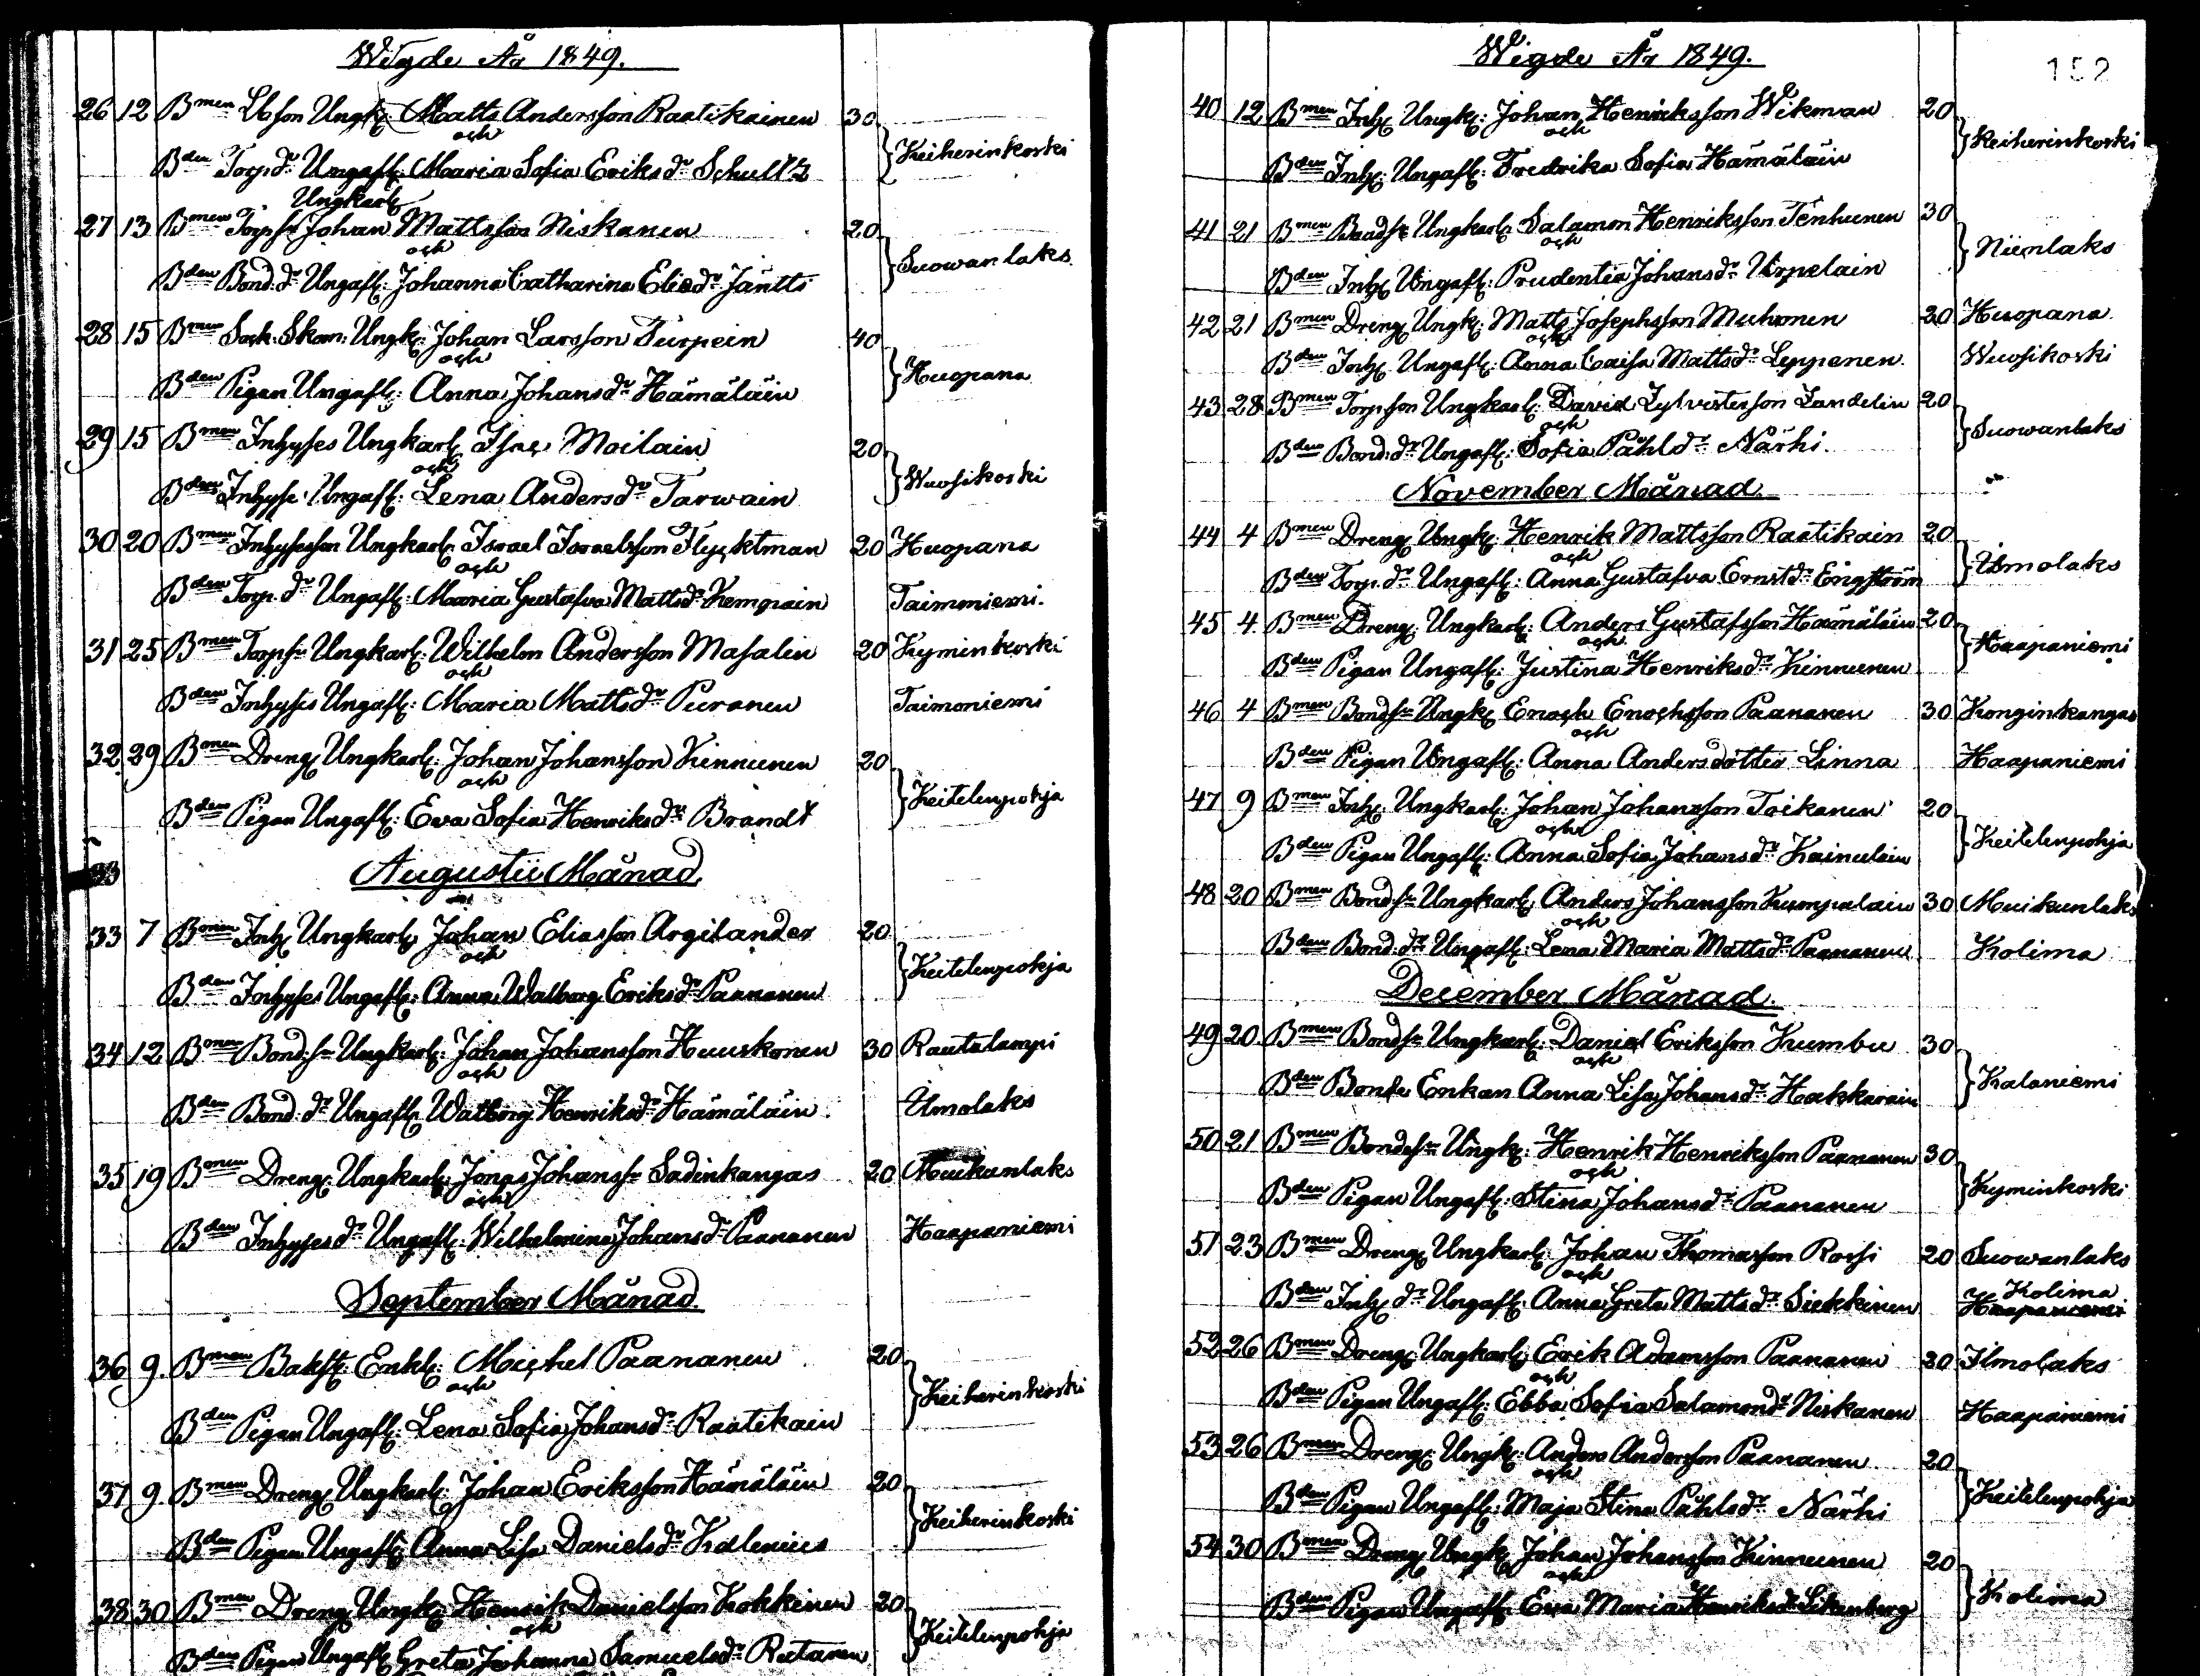 Wigde År 1849.
26 12 Bmen Lösson Ungk: Matts Andersson Raatikainen 30
och
Bden Torp.dr Ungafl: Maria Sofia Eriksdr Schultz
Keiherinkoski
Ungkarl
27 13 Bmen Torpsn Johan Mattsson Niskanen 20
och
Bden Bond.dr Ungafl: Johanna Catharina Eliedr Jäntti
Suowanlaks
28 15 Bmen Sock. Skom. Ungk: Johan Larsson Turpein 40
och
Bden Pigan Ungafl: Anna Johansdr Hämäläin
Huopana
29 15 Bmen Inhyses Ungkarl: Moilain 20
och
Bden Inhyse Ungafl: Lena Andersdr Tarwain
Wuosikoski
30 20 Bmen Inhysesson Ungkarl: Israel Israelsson Flycktman 20 Huopana
och
Bden Torp.dr Ungafl: Maria Gustafva Mattsdr Kempain Taimoniemi.
31 25 Bmen Torpsn Ungkarl: Wilhelm Andersson Masalin 20 Kyminkoski
och
Bden Inhyses Ungafl: Maria Mattsdr Puranen Taimoniemi
32 29 Bmen Dreng Ungkarl: Johan Johansson Kinnunen 20
och
Bden Pigan Ungafl: Eva Sofia Henriksdr Brandt
Keitelenpohja
33 Augustii Månad
33 7 Bmen Inh: Ungkarl: Johan Eliasson Argilander 20
och
Bden Inhyses Ungafl: Anna Walborg Eriksdr Paananen
Keitelenpohja
34 12 Bmen Bond.sn Ungkarl: Johan Johansson Huuskonen 30 Rautalampi
och
Bden Bond.dr Ungafl: Walborg Henriksdr Hämäläin Ilmolaks
35 19 Bmen Dreng Ungkarl: Jonas Johanssn Sadinkangas 20 Muikunlaks
och
Bden Inhysesdr Ungafl: Wilhelmina Johansdr Paananen Haapaniemi
September Månad.
36 9. Bmen Enkl: Michel Paananen 20
och
Bden Pigan Ungafl: Lena Sofia Johansdr Raatikain
Keiherinkoski
37 9. Bmen Dreng Ungkarl: Johan Eriksson Hämäläin 20
Bden Pigan Ungafl: Anna Lisa Danielsdr Kalenius
Keiherinkoski
38 30 Bmen Dreng Ungk: Henrik Danielsson Kokkinen 20
och
Bden Pigan Ungafl: Greta Johanna Samuelsdr Rutanen
Keitelenpohja
Wigde År 1849.
152
40 12 Bmen Inh: Ungk: Johan Henriksson Wikman 20
och
Bden Inh: Ungafl: Fredrika Sofia Hämäläin
Keiherinkoski
41 21 Bmen Bondsn Ungkarl: Salamon Henriksson Tenhunen 30
och
Bden Inh: Ungafl: Prudentia Johansdr Urpelain
Niinlaks
42 21 Bmen Dreng Ungk: Matts Josephsson Muhonen 20 Huopana
och
Bden Inh: Ungafl: Anna Caisa Mattsdr Leppänen Wuosikoski
43 28 Bmen Torpsson Ungkarl: David Zylvesterson Landelin 20
och
Bden Bond.dr Ungafl: Sofia Påhlsdr Närhi.
Suowanlaks
November Månad.
44 4 Bmen Dreng Ungk: Henrik Mattsson Raatikain 20
och
Bden Torp.dr Ungafl: Anna Gustafva Ernstdr Engström
Ilmolaks
45 4. Bmen Dreng Ungkarl: Anders Gustafsson Hämäläin 20
och
Bden Pigan Ungafl: Justina Henriksdr Kinnunen
Haapaniemi
46 4 Bmen Bondsn Ungk: Enoch Enochsson Paananen 30 Konginkangas
och
Bden Pigan Ungafl: Anna Andersdotter Linna Haapaniemi
47 9 Bmen Inh: Ungkarl: Johan Johansson Toikanen 20
och
Bden Pigan Ungafl: Anna Sofia Johansdr Kainulain
Keitelenpohja
48 20 Bmen Bond.sn Ungkarl: Anders Johansson Kumpulain 30 Muikunlaks
och
Bden Bond.dr Ungafl: Lena Maria Mattsdr Paananen Kolima
December Månad.
49 20 Bmen Bondsn Ungkarl: Daniel Eriksson Kumbu 30
och
Bden Bonde Enkan Anna Lisa Johansdr Hakkarain
Kalaniemi
50 21 Bmen Bondesn Ungk: Henrik Henriksson Paananen 30
och
Bden Pigan Ungafl: Stina Johansdr Paananen
Kyminkoski
51 23 Bmen Dreng Ungkarl: Johan Thomasson Rossi 20 Suowanlaks
och
Bden Inh:dr Ungafl: Anna Greta Mattsdr Siekkinen Kolima
Haapaniemi
52 26 Bmen Dreng Ungkarl: Erik Adamsson Paananen 20 Ilmolaks
och
Bden Pigan Ungafl: Ebba Sofia Salamonsdr Niskanen Haapaniemi
53 26 Bmen Dreng Ungk: Anders Andersson Paananen 20
och
Bden Pigan Ungafl: Maja Stina Påhlsdr Närhi
Keitelenpohja
54 30 Bmen Dreng Ungk: Johan Johansson Kinnunen 20
och
Bden Pigan Ungafl: Eva Maria Henriksdr Likenberg
Kolima